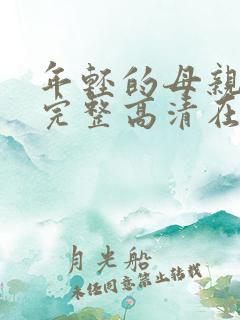 年轻的母亲
完整高清在
月光船
未经同意禁止转载